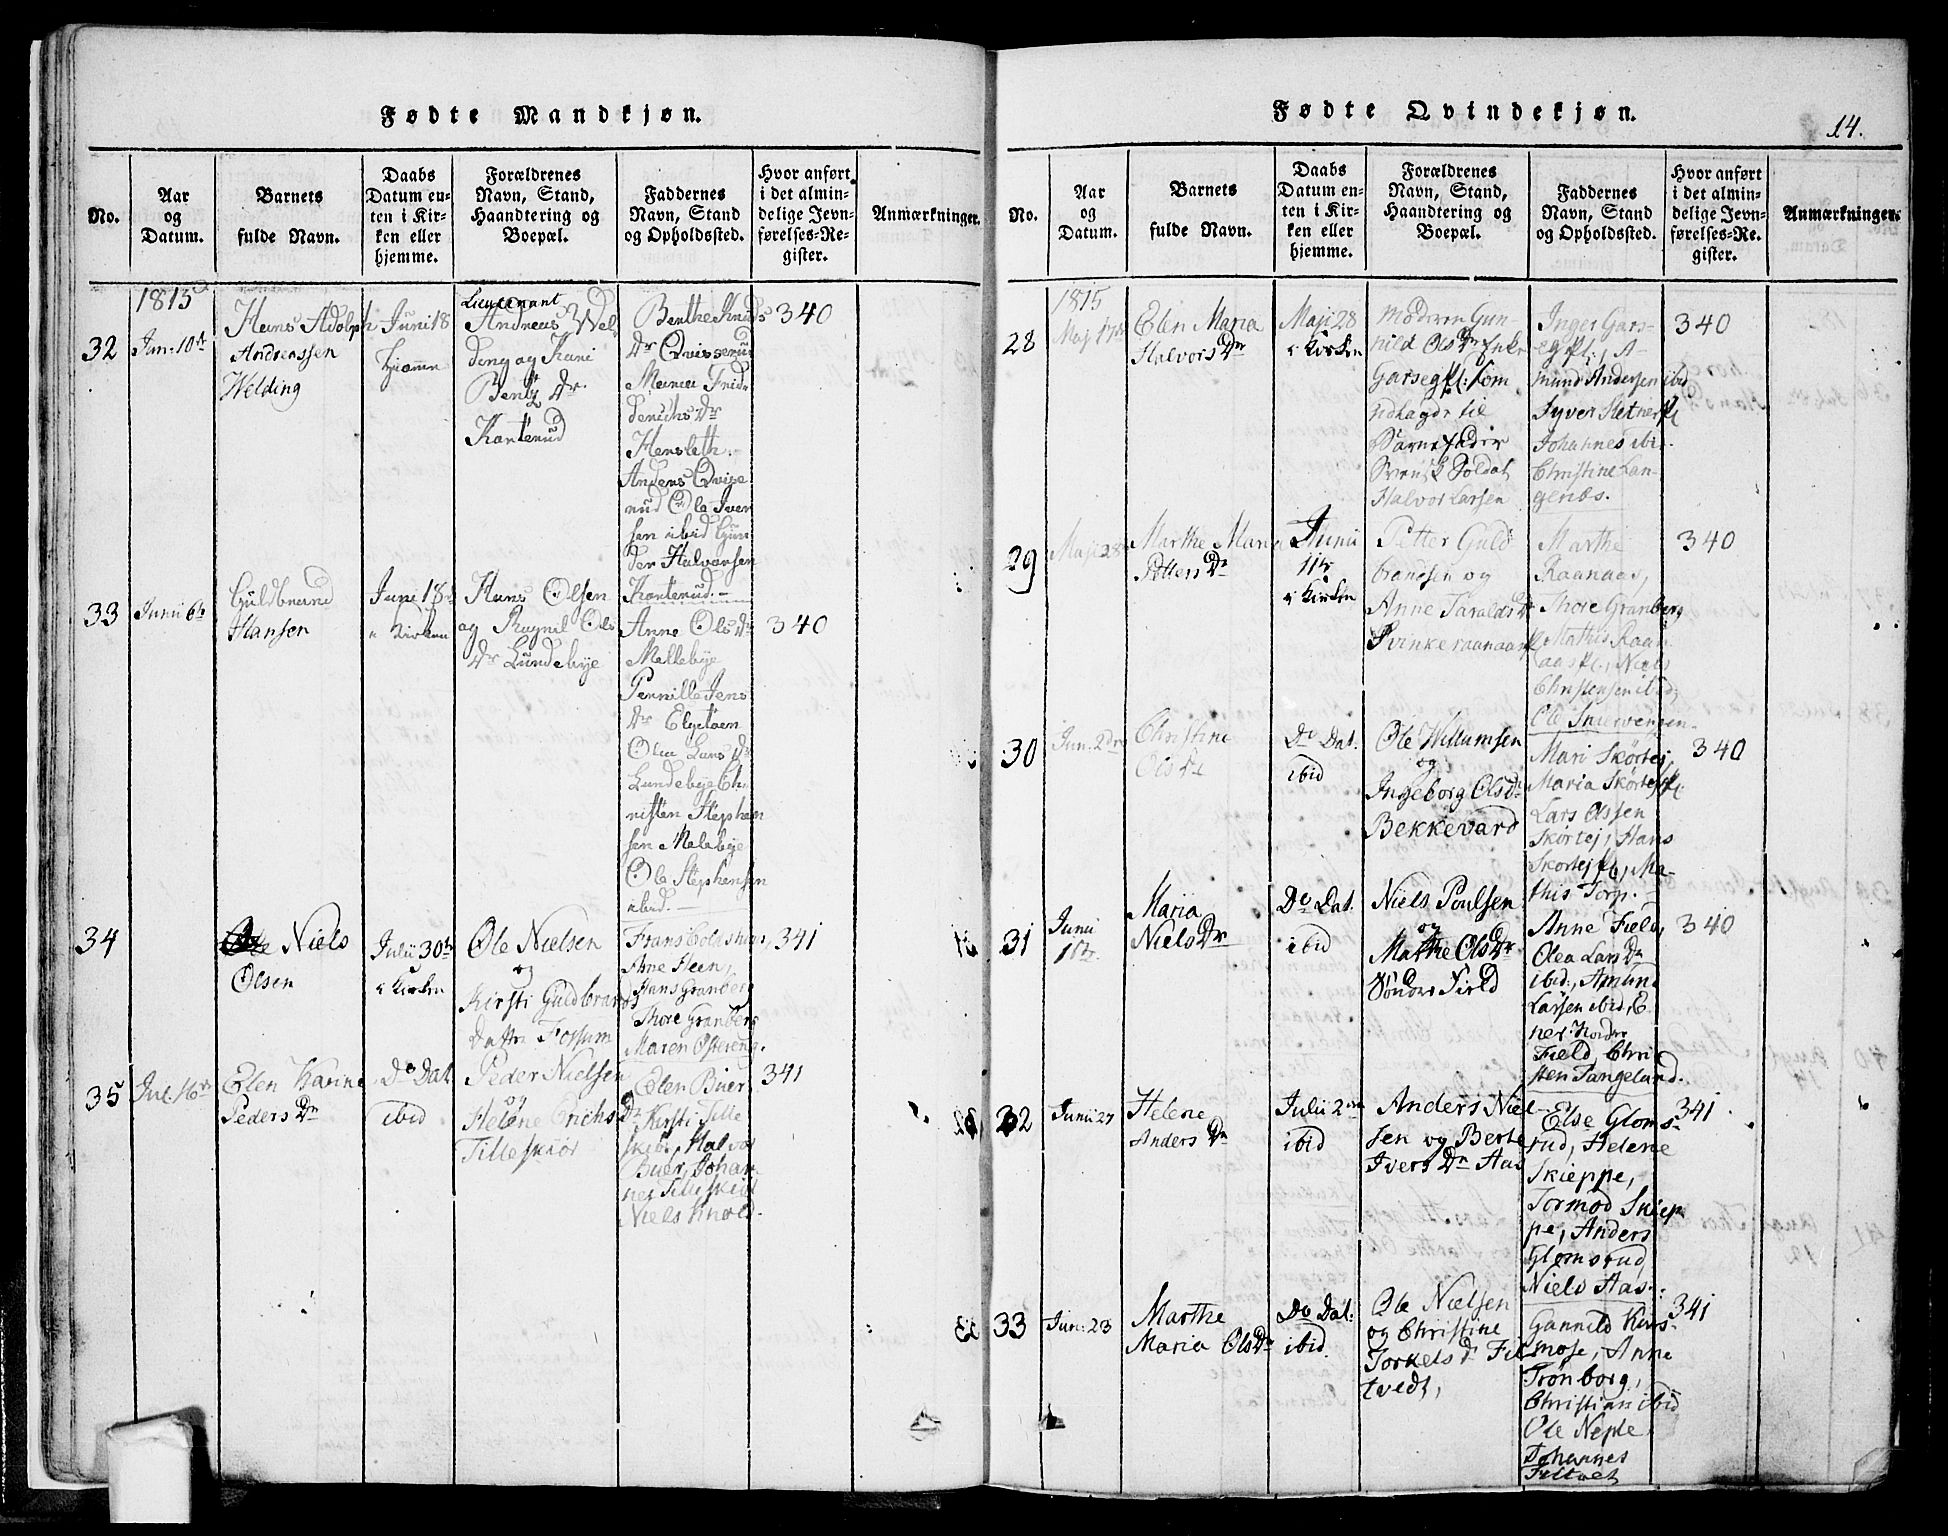 Fødte Mandkjøn.
No.
Aar
og
Datum.
Barnets
fulde Navn.
Daabs
Datum en-
ten i Kir-
ken eller
hjemme.
Forældrenes
Navn, Stand,
Haandtering og
Boepæl.
Faddernes
Navn, Stand
og Opholdssted.
Hvor anført
i det almin-
delige Jevn-
førelses-Re-
gister.
Anmærkninger.
1815
32
Jun. 10de
Hans Adolph
Andreassen
Welding
Juni 18
hjemme
Lieutenant
Andreas Wel
ding og Kari
Bentz Dr
Kanterud
Berthe Knuds
Dr Qvisserud
Maria Frid
derichs Dr
Hensleth.
Anders Qvisse
rud Ole Iver
sen ibid Gun
der Halvorsen
Kanterud.
340
33
Junii 6te
Guldbrand
Hansen
Juni 18
i Kirken
Hans Olsen
og Ragnil Ols
Dr Lundebye
Anne Ols Dr
Mellebye
Pernille Jens
Dr Elgetøen
Olia Lars Dr
Lundebye Ch
risten Stephen
sen Melebye
Ole Stephensen
ibid.
340
34
Niels
Olsen
Julii 30te
i Kirken
Ole Nielsen
og
Kirsti Guldbrands
Datter Fossum
Anne Heen,
Hans Granberg
Thore Granberg
Maren Østereng.
341
35
Jul. 16de
Elen Karine
Peders Dr
Do Dat
ibid
Peder Nielsen
og
Helene Erichs Dr
Tilleskiør
Elen Buer
Kirsti Tille
skiør, Halvor
Buer, Johan
nes Tilleskiør
Niels Knold.
341
Fødte Qvindekjøn.
14.
No.
Aar
og
Datum.
Barnets
fulde Navn.
Daabs
Datum en-
ten i Kir-
ken eller
hjemme.
Forældrenes
Navn, Stand,
Haandtering og
Boepæl.
Faddernes
Navn, Stand
og Opholdssted.
Hvor anført
i det almin-
delige Jevn-
førelses-Re-
gister.
Anmærkninger.
1815
28
Maj 17de
Elen Maria
Halvors Dr
Maji 28
i Kirken
Moderen Gun-
nild Ols Dr Enke
Garseg pl: som
udlagde til
Barnefader
Svensk Soldat
Halvor Larsen
Inger Gars-
eg pl:, A-
mund Andersen ibid
Syver Hetner pl
Johannes ibi.
Christine Lan-
genæs.
340
29
Maji 28
Marthe Maria
Petters Dr
Junii
11te
i Kirken
Petter Guld
brandsen og
Anne Taralds Dr
Svinkeraanaas pl
Marthe
Raanaas,
Thore Granberg
Mathis Raan-
aas pl., Niels
Christensen ibid;
Ole Snerverigen.
340
30
Jun. 2den
Christine
Ols Dr
Do Dat.
ibid
Ole Willumsen
og
Ingeborg Ols Dr
Bekkevard
Mari Skørtej,
Maria Skørtej pl.
Lars Olssen
Skørtej, Hans
Skørtej pl, Ma-
this Torp.
340
31
Junii
11te
Maria
Niels Dr
Do Dat.
ibid
Niels Poulsen
og
Marthe Ols Dr
Sønder Field
Anne Field,
Olea Lars Dr
ibid., Amund
Larsen ibid, E
ner Nordre
Field, Chri
sten Tangeland.
340
32
Junii 27
Helene
Anders Dr
Julii 2den
ibid
Anders Niel-
sen og Berte
Ivers Dr Aas
Else Gloms-
rud, Helene
Skieppe,
Tormod Skiep
pe, Anders
Glomsrud,
Niels Aas.
341
33
Jun: 23
Marthe
Maria Ols Dr
Do Dat:
ibid.
Ole Nielsen
og Christine
Torkels Dr Fil
tvedt,
Gunnild Kors-
mose, Anne
Trønborg,
Christian ibid
Ole Neple
Johannes
Filtvet
341